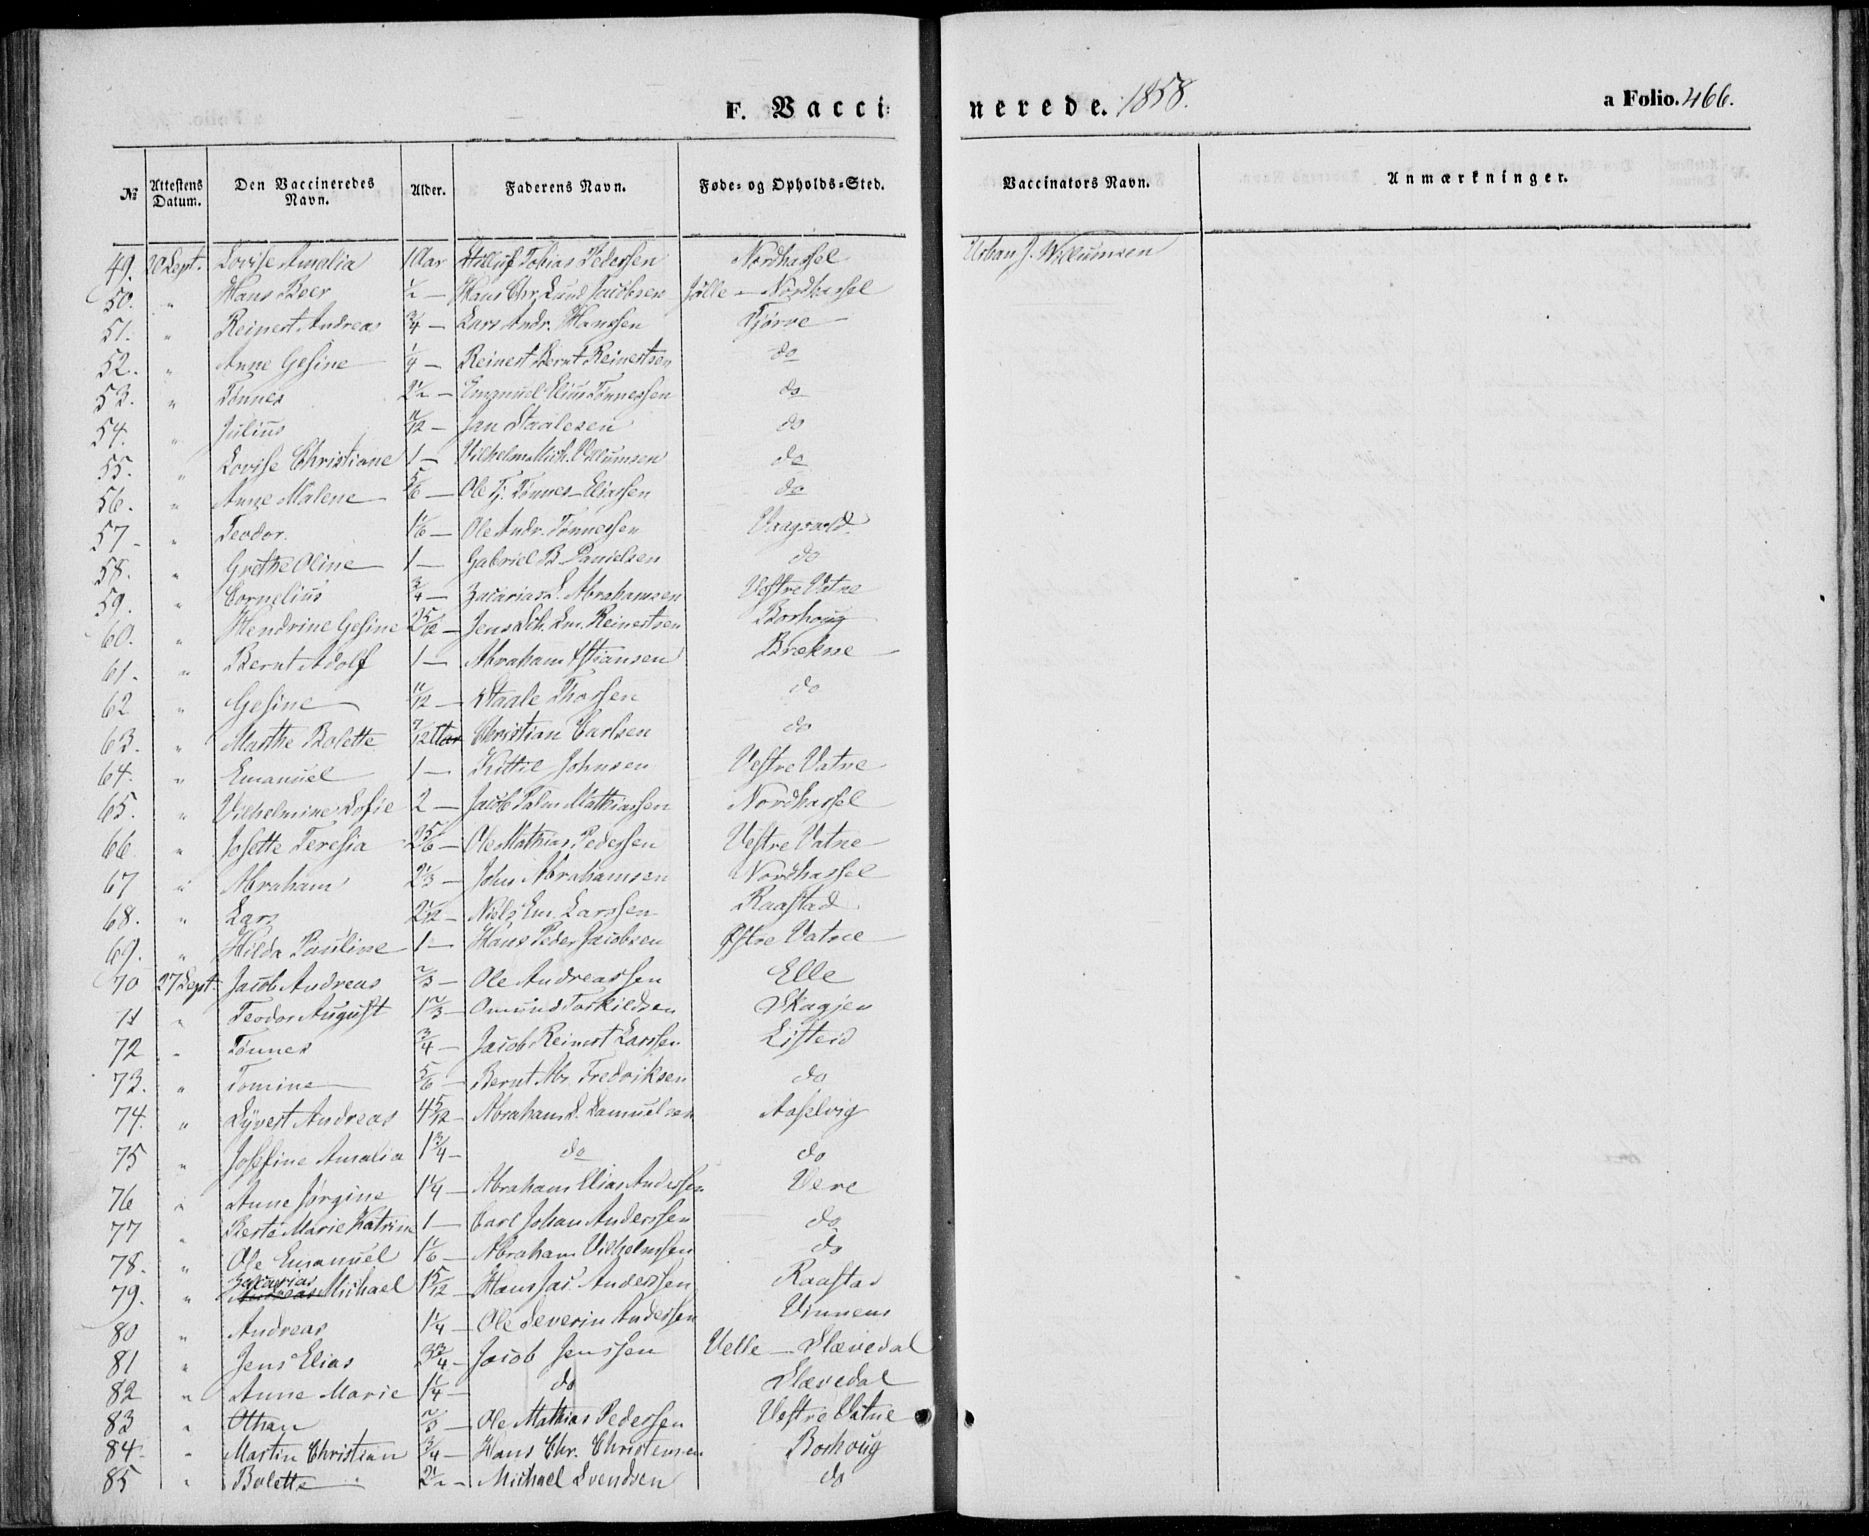 F. Vaccinerede. 1858. a Folio. 466.
No Attestens Datum. Den Vaccineredes Navn. Alder. Faderens Navn. Føde- og Opholds-Sted. Vaccinators Navn. Anmærkninger.
49. 20 Sept. Lovise Amalia 1 Aar Tobias Pedersen Nordhassel Urban J. Willumsen
50. " Hans Beer ½ — Hans Chr. Lund Jacobsen Jølle — Nordhassel
51. " Reinert Andreas ¾ — Lars Andr. Hanssen Tjørve
52. " Anne Gesine ¼ — Reinert Bernt Reinertsen do
53. " Tønnes 2½ — Emanuel Elius Tønnessen do
54. " Julius 11/12 — Jan Staalesen do
55. " Lovise Christiane 1 — Vilhelm Mich. Villumsen do
56. " Anne Malene 5/6 — Ole Tj. Tønnes Eliassen do
57 " Teodor. 1 1/6 — Ole Andr. Tønnessen Vaagsvold.
58. " Grethe Oline 1 — Gabriel B. Danielsen do
59. " Cornelius ¾ — Zacarias L. Abrahamsen Vestre Vatne
60. " Hendrine Gesine 2 5/12 — Jens Em. Reinertsen Borhoug
61. " Bernt Adolf 1 — Abraham Stiansen Brekne
62 " Gesine 11/12 — Staale Thorsen do
63. " Marthe Bolette 7/12 Aar Christian Carlsen do
64. " Emanuel 1 — Kittil Johnsen Vestre Vatne
65. " Vilhelmine Sofie 2 — Jacob Palm Mathiassen Nordhassel
66 " Josette Teresia 2 5/6 — Ole Mathias Pedersen Vestre Vatne
67 " Abraham 2 1/3 — John Abrahamsen Nordhassel
68. " Lars 2 1/12 — Niels Em. Larssen Raastad
69. " Hilda Pauline 1 — Hans Peder Jacobsen Østre Vatne
70 27 Sept. Jacob Andreas 2/3 — Ole Andreassen Elle
71 " Teodor August 1 2/3 — Omund Torkildsen Skagjen
72 " Tønnes ¾ — Jacob Reinert Larssen Listeid
73. " Tomine 5/6 — Bernt Ab. Fredriksen do
74. " Syvert Andreas 4 5/12 — Abraham S. Samuelsen Aaselvig
75 " Josefine Amalia 1 ¾ — do do
76 " Anne Jørgine 1 ¼ — Abraham Elias Anderssen Vere
77 " Berte Marie Katrine 1 — Carl Johan Anderssen do
78. " Ole Emanuel 1 1/6 — Abraham Vilhelmsen do
79. " Zacarias Michael 1 5/12 — Hans Jac. Anderssen Raastad
80 " Andreas 1 ¼ — Ole Severin Anderssen Vinnens
81 " Jens Elias 3 ¾ — Jacob Jenssen Velle — Slævedal
82 " Anne Marie 1 ¼ — do Slævedal
83 " Othan 2/3 — Ole Mathias Pedersen Vestre Vatne
84. " Martin Christian ¾ — Hans Chr. Christensen Borhoug
85 " Bolette 2 ½ — Michael Svendsen do